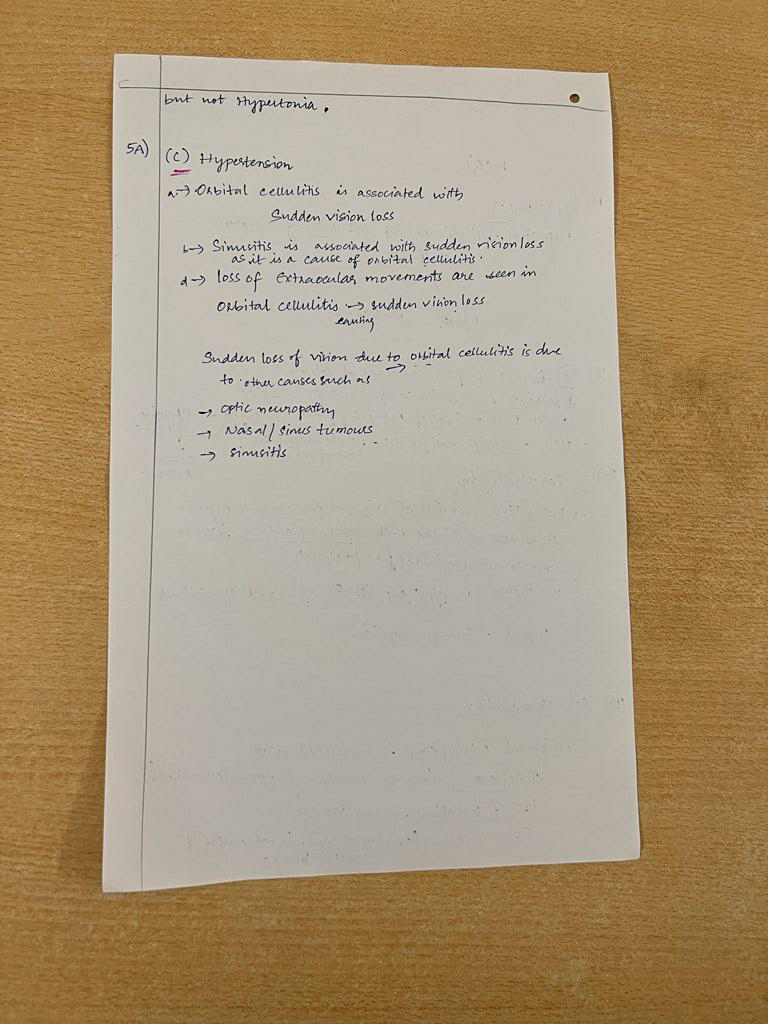 but not Hypertonia.
5A) (C) Hypertension
a → Orbital cellulitis is associated with
Sudden vision loss
b → Sinusitis is associated with sudden vision loss
as it is a cause of orbital cellulitis.
d → loss of Extraocular movements are seen in
Orbital cellulitis → sudden vision loss
causing
Sudden loss of vision due to → orbital cellulitis is due
to other causes such as
→ Optic neuropathy
→ Nasal / sinus tumours
→ sinusitis